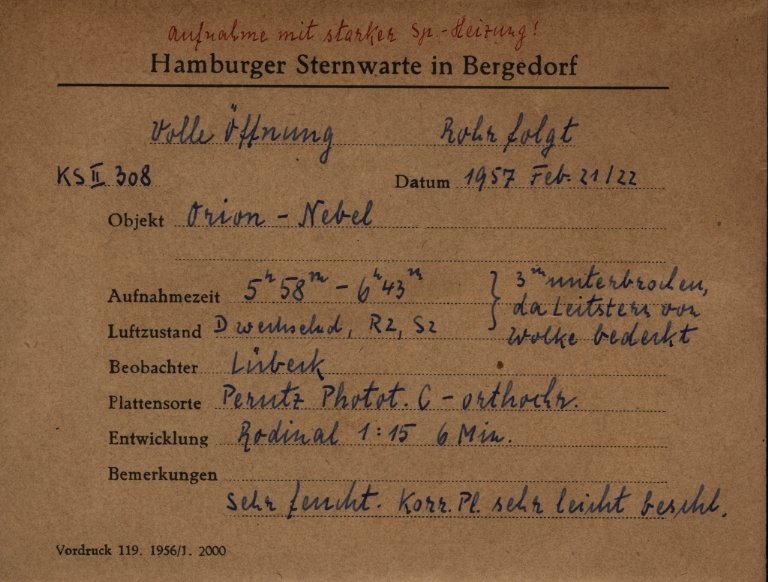 Aufnahme mit starker Sp.-Heizung!
Hamburger Sternwarte in Bergedorf
Volle Öffnung Rohr folgt
KS II 308 Datum 1957 Feb. 21/22
Objekt Orion - Nebel
Aufnahmezeit 5ʰ 58ᵐ - 6ʰ 43ᵐ } 3ᵐ unterbrochen,
da Leitstern von
Luftzustand D wechselnd, R2, S2 Wolke bedeckt
Beobachter Lübeck
Plattensorte Perutz Photot. C - orthochr.
Entwicklung Rodinal 1:15 6 Min.
Bemerkungen
Sehr feucht. Korr. Pl. sehr leicht beschl.
Vordruck 119. 1956/1. 2000